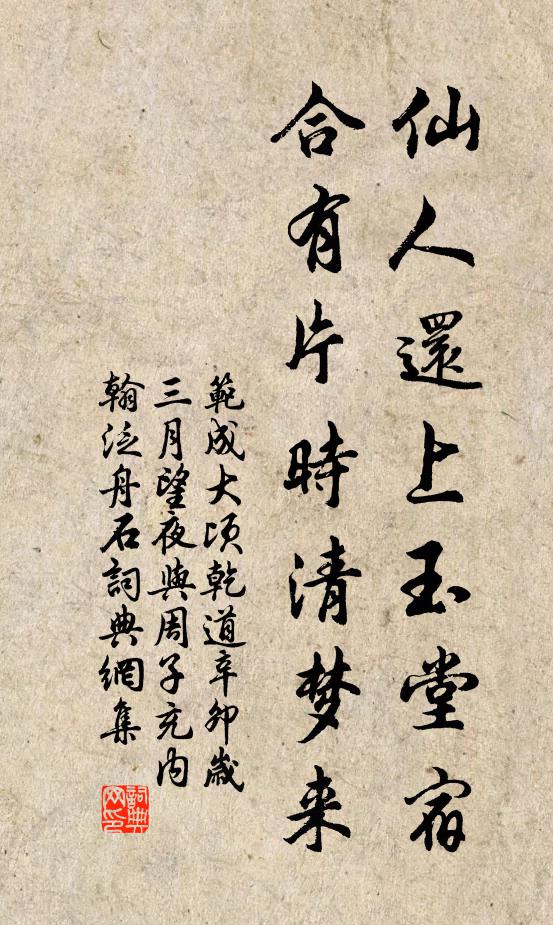 仙人還上玉堂宿
合有片時清梦来
範成大頃乾道辛卯歲
三月望夜與周子充内
翰泛舟石詞典網集
詞典
网印